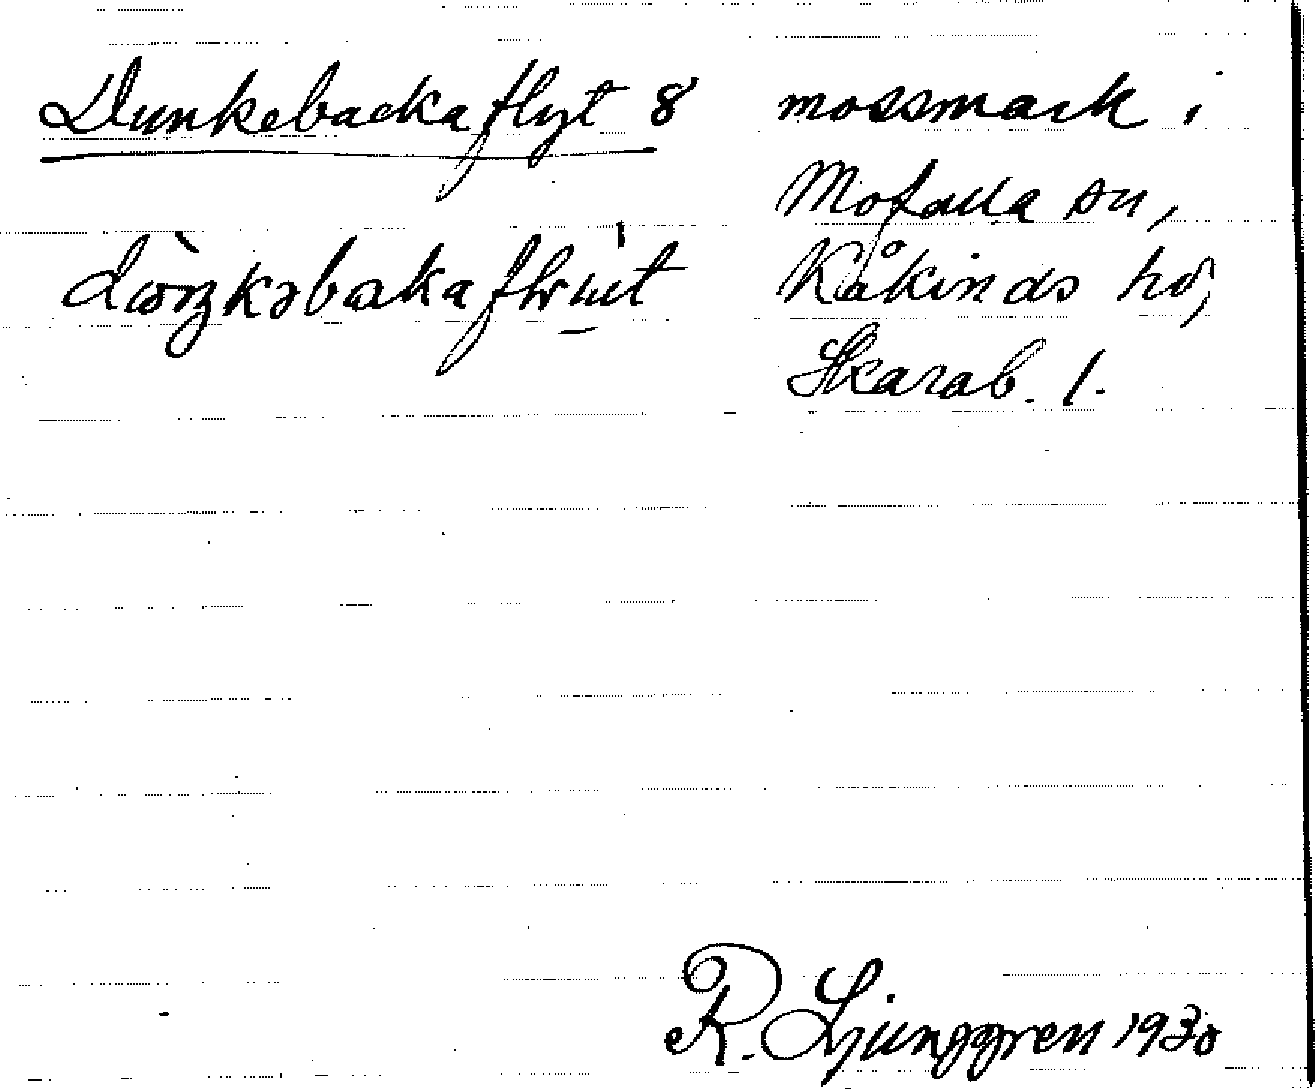 Dunkebackaflyt 8
mossmark i
Mofalla sn,
Kåkinds hd,
Skarab. l.
R. Ljunggren 1930